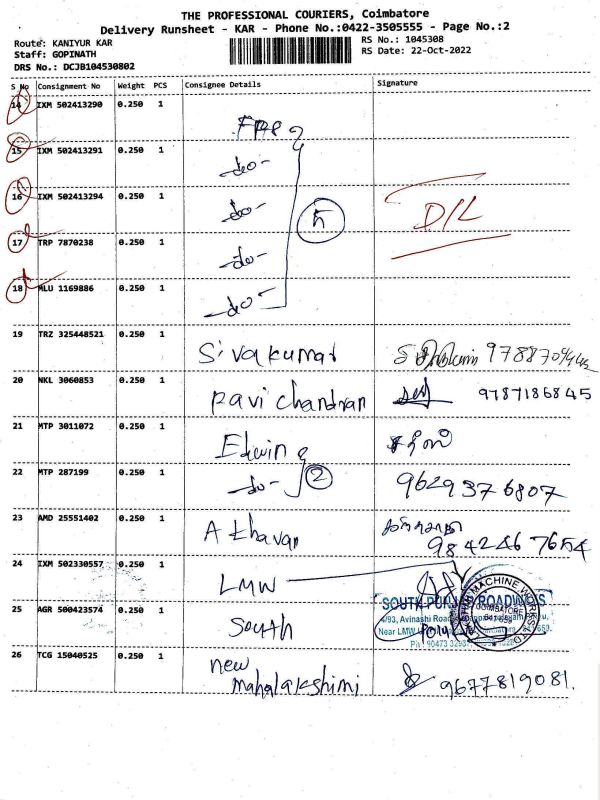 THE PROFESSIONAL COURIERS, Coimbatore
Delivery Runsheet - KAR - Phone No.:0422-3505555 - Page No.:2
Route: KANIYUR KAR
RS No.: 1045308
Staff: GOPINATH
RS Date: 22-Oct-2022
DRS No.: DCJB104530802
S No Consignment No Weight PCS Consignee Details Signature
14 IXM 502413290 0.250 1
15 IXM 502413291 0.250 1 -do-
16 IXM 502413294 0.250 1 -do- D/L
17 TRP 7870238 0.250 1 -do-
18 MLU 1169886 0.250 1 -do-
19 TRZ 325448521 0.250 1 Sivakumar
20 NKL 3060853 0.250 1 Ravi chandran 9787186845
21 MTP 3011072 0.250 1 Edwin
22 MTP 287199 0.250 1 -do- 2 9629376807
23 AMD 25551402 0.250 1 Athavan 9842467654
24 IXM 502330557 0.250 1 LMW
SOUTH PUNJAB ROADWAYS
25 AGR 500423574 0.250 1 South
4/93, Avinashi Road
Near LMW
26 TCG 15040525 0.250 1 new mahalakshimi 9677819081.